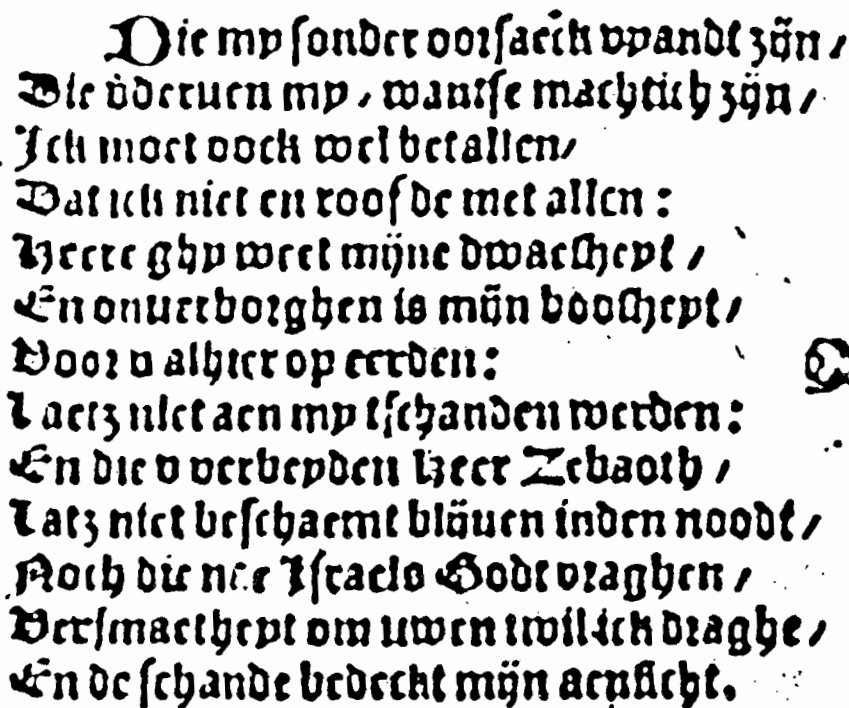 Die my sonder oorsaeck vyandt zijn /
Die v̄deruen my / wantse machtich zijn /
Ick moet oock wel betallen /
Dat ick niet en roofde met allen :
Heere ghy weet mijne dwaesheyt /
En onuerborghen is mijn boosheyt /
Voor v alhier op eerden :
Laetz niet aen my tschanden werden :
En die v verbeyden Heer Zebaoth /
Latz niet beschaemt blijuen inden noodt /
Noch die nae Israels Godt vraghen /
Versmaetheyt om uwen twil ick draghe /
En de schande bedeckt mijn aensicht.